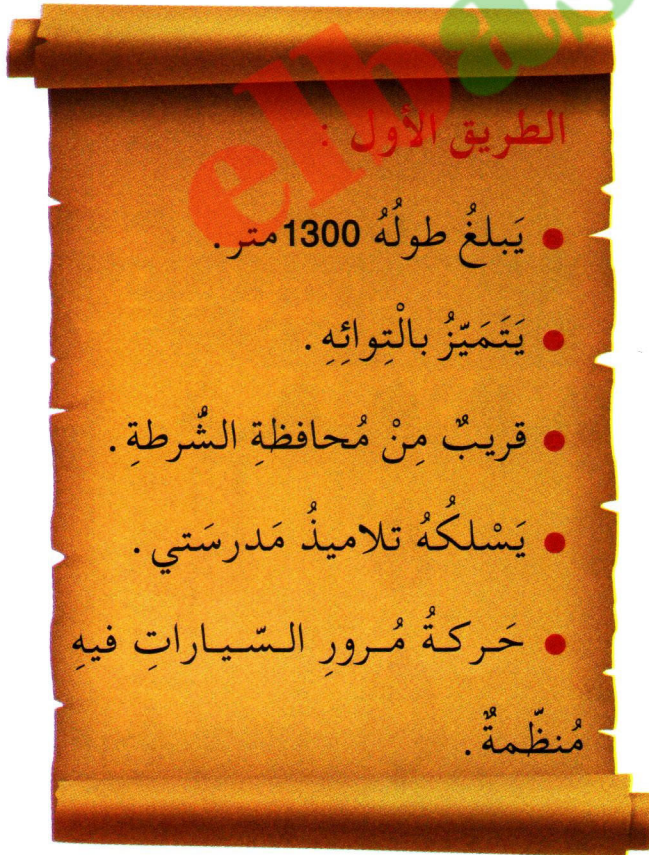 الطريق الأول :
• يَبلغُ طولُهُ 1300متر .
• يَتَمَيّزُ بالْتِوائِهِ .
• قريبٌ مِنْ مُحافظةِ الشُّرطةِ .
• يَسْلكُهُ تلاميذُ مَدرسَتي .
• حَركةُ مُرورِ السّياراتِ فيهِ
مُنظّمةٌ .